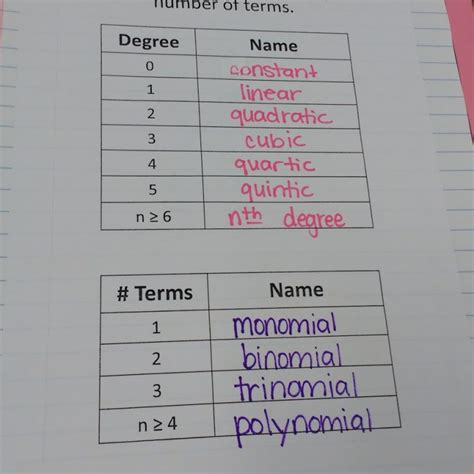 number of terms.
Degree Name
0 constant
1 linear
2 quadratic
3 cubic
4 quartic
5 quintic
n ≥ 6 nth degree
# Terms Name
1 monomial
2 binomial
3 trinomial
n ≥ 4 polynomial